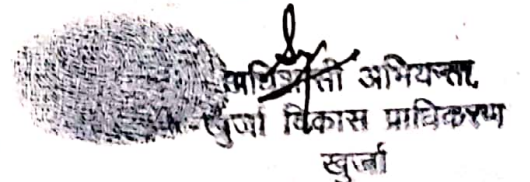 अधिशासी अभियन्ता,
खुर्जा विकास प्राधिकरण
खुर्जा